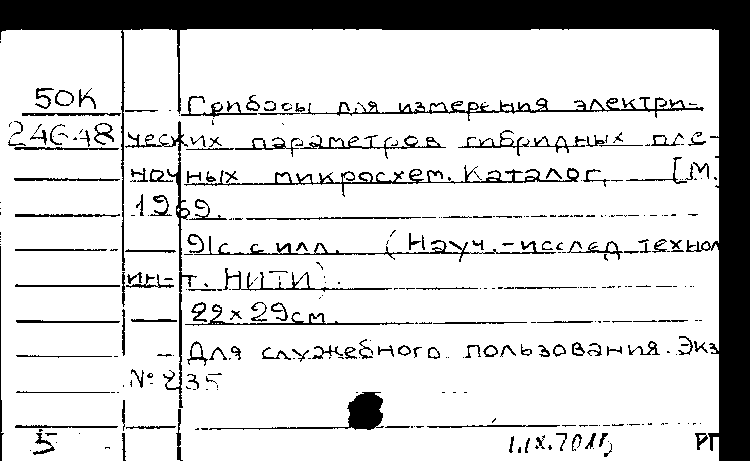 50К
Приборы для измерения электри-
246.48 ческих параметров гибридных пле-
ночных микросхем. Каталог, [М.]
1969.
91с. с илл. (Науч.-исслед. технол
ин-т. НИТИ).
22×29см.
Для служебного пользования. Экз
№ 235
5 1.IX.70 РГ